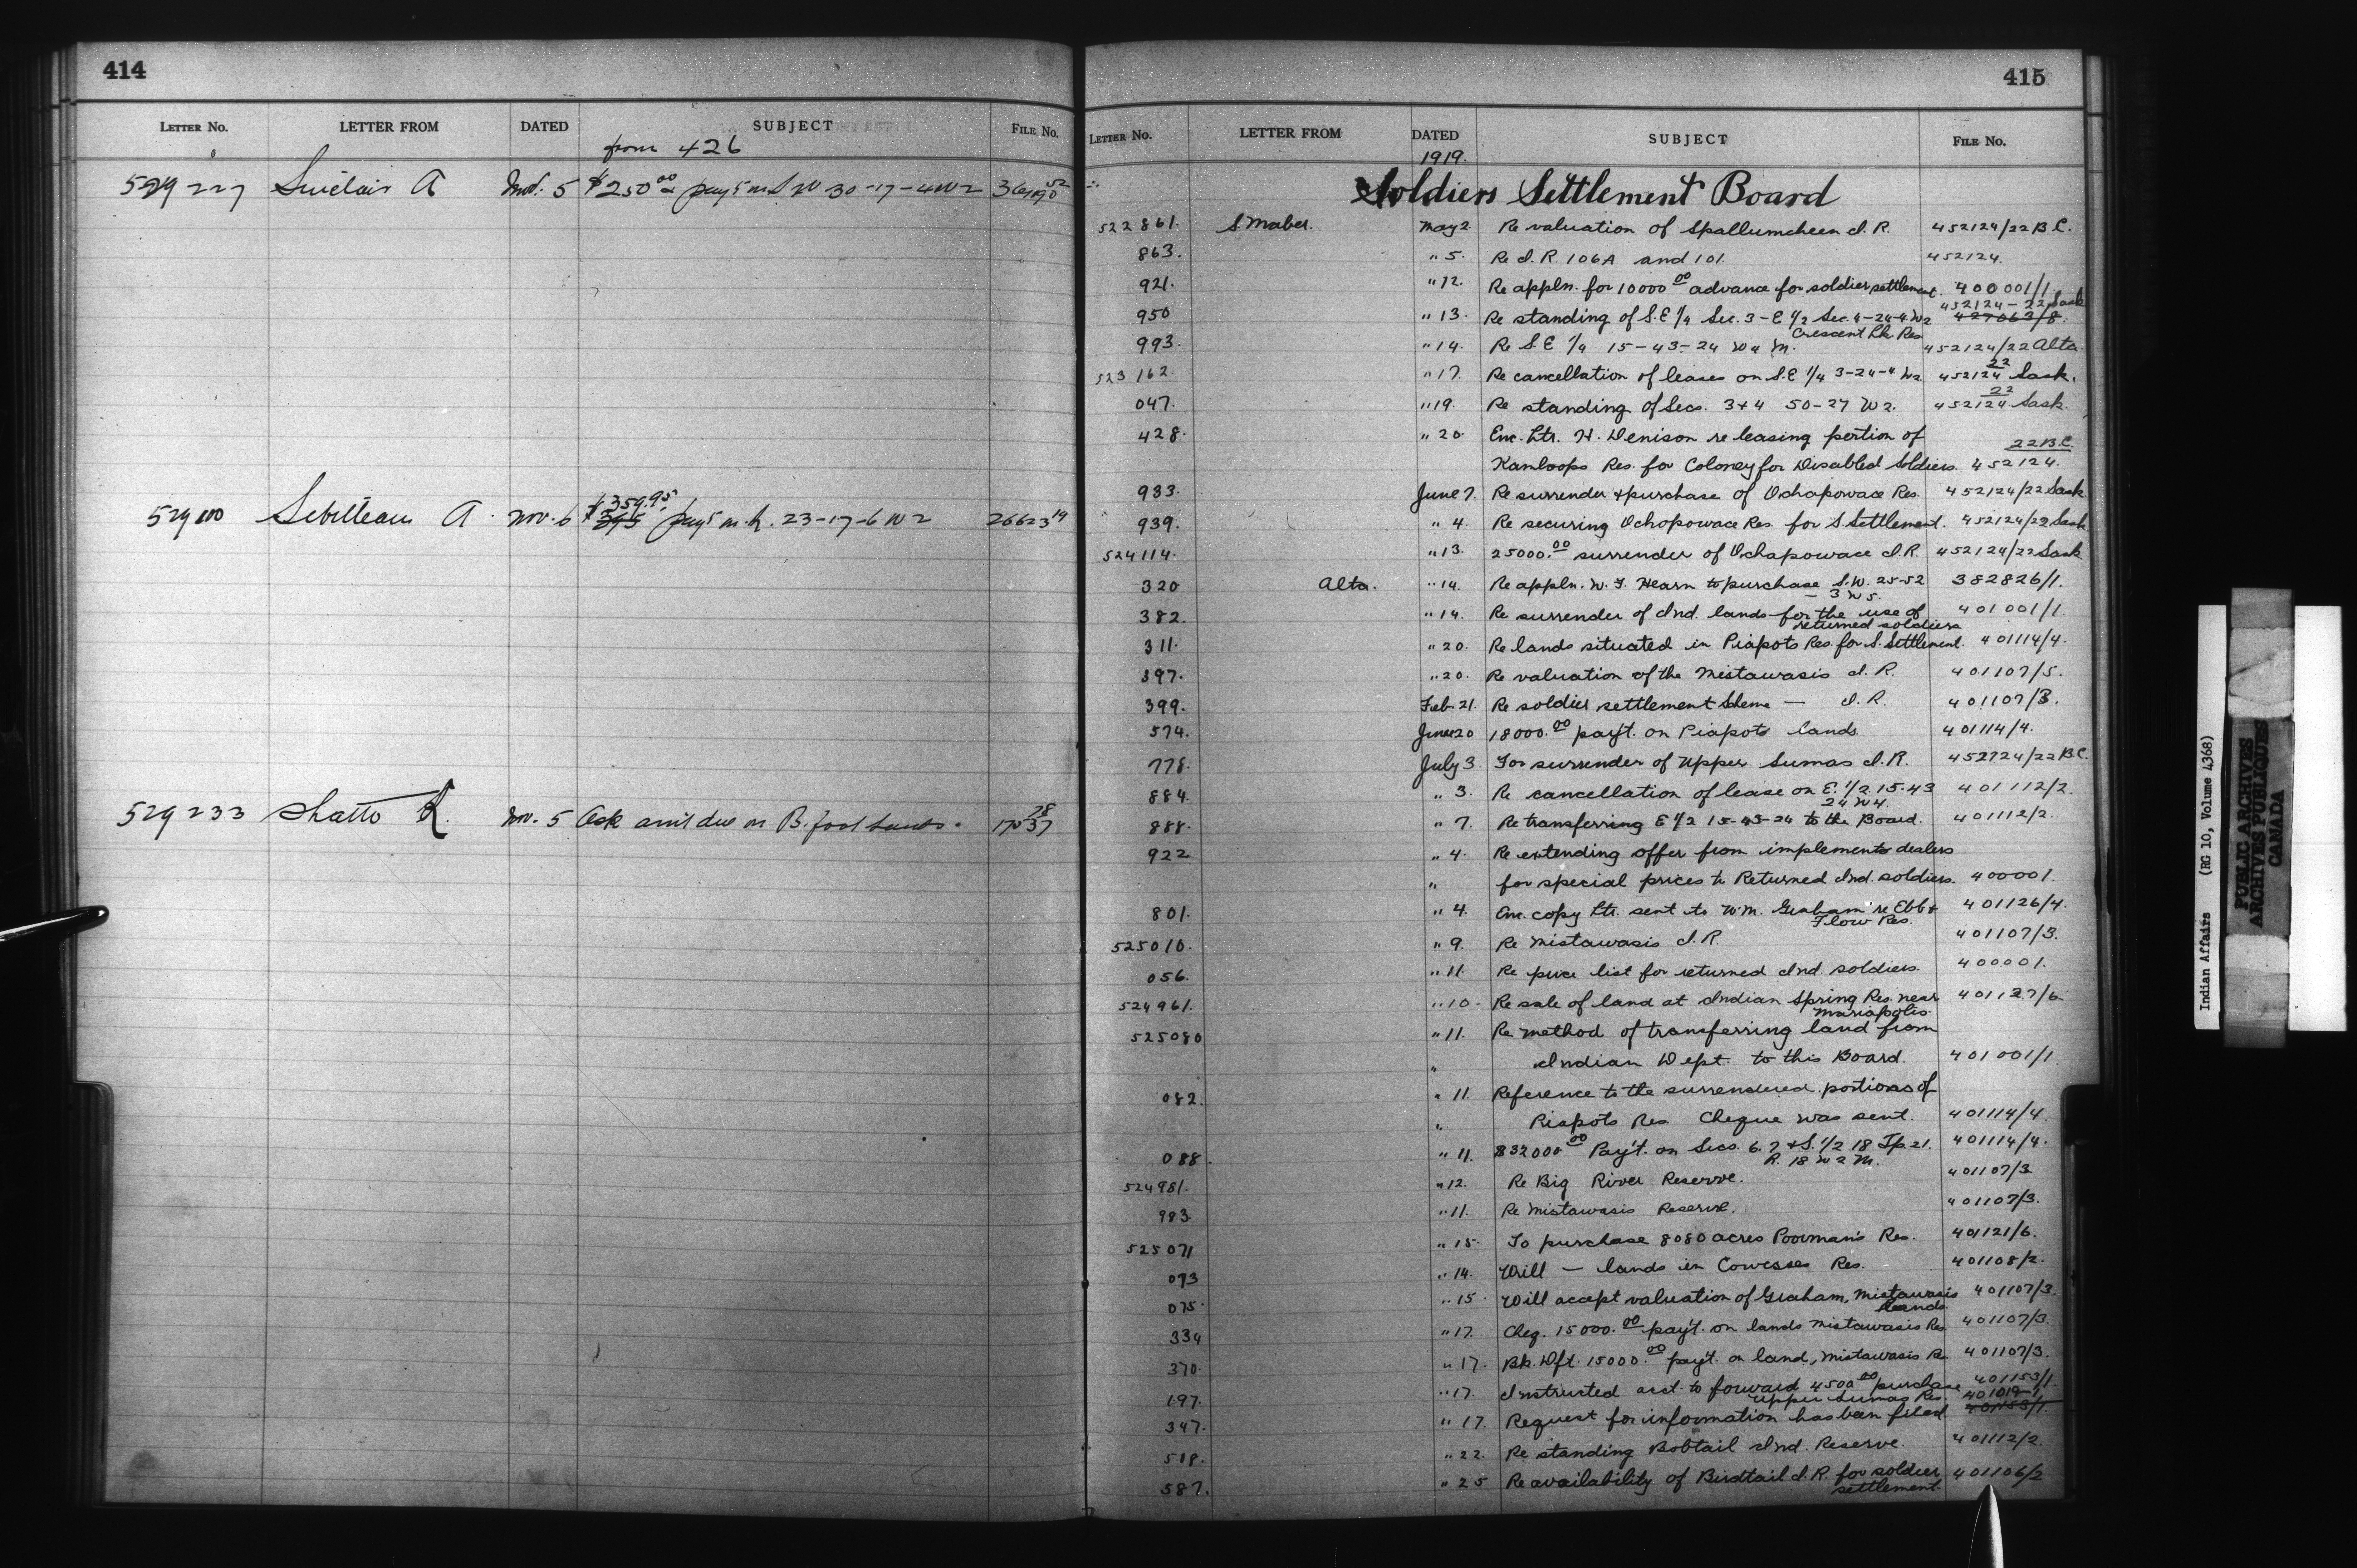 414
LETTER NO. LETTER FROM DATED SUBJECT FILE No.
from 426
529227 Sinclair A Nov. 5 $250.00 pay't on SW 30-17-4W2
529100 A. Nov. 6 $359.95 pay't on 23-17-6 W2 26623
529233 Shatto R. Nov. 5 Ask am't due on B. foot lands.
415
LETTER No. LETTER FROM DATED SUBJECT FILE No.
1919.
Soldiers Settlement Board
522861. S. Maber. May 2 Re valuation of Spallumcheen I.R. 452124/22 B.C.
863. " 5. Re I.R. 106A and 101. 452124.
921. " 12. Re appln. for 10000.00 advance for soldier settlement. 400001/1.
452124-22 Sask
950 " 13. Re standing of S.E 1/4 Sec. 3-E 1/2 Sec. 4-24-4 W2 427063/8.
Crescent Lk Res
993. " 14. Re S.E 1/4 15-43-24 W4 M. 452124/22 Alta.
523162. " 17. Re cancellation of leases on S.E 1/4 3-24-4 W2 452124/22 Sask.
047. " 19. Re standing of Secs. 3+4 50-27 W2. 452124/22 Sask.
428. " 20. Enc. ltr. H. Denison re leasing portion of 22 B.C.
Kamloops Res. for Coloney for Disabled Soldiers. 452124.
933. June 7. Re surrender & purchase of Ochapowace Res. 452124/22 Sask
939. " 4. Re securing Ochopowace Res. for S. Settlement. 452124/22 Sask
524114. " 13. 25000.00 surrender of Ochapowace I.R. 452124/22 Sask
320 Alta. " 14. Re appln. W. J. Hearn to purchase S.W. 25-52 382826/1.
- 3 W5.
382. " 14. Re surrender of Ind. lands for the use of 401001/1
returned soldiers
311. " 20. Re lands situated in Piapots Res. for S. Settlement. 401114/4.
397. " 20. Re valuation of the Mistawasis I.R. 401107/5.
399. Feb. 21. Re soldier settlement Scheme — I.R. 401107/3.
574. June 20 18000.00 pay't. on Piapots lands 401114/4.
778. July 3 For surrender of Upper Sumas I.R. 452124/22 B.C.
884. " 3. Re cancellation of lease on E. 1/2 15-43 401112/2.
24 W4.
888. " 7. Re transferring E 1/2 15-43-24 to the Board. 401112/2.
922 " 4. Re extending offer from implements dealers
" for special prices to Returned Ind. soldiers. 400001.
801. " 4. Enc. copy ltr. sent to W.M. Graham re Ebb & 401126/4.
Flow Res.
525010. " 9. Re Mistawasis I.R. 401107/3.
056. " 11. Re price list for returned Ind. soldiers. 400001.
524961. " 10. Re sale of land at Indian Spring Res. near 401127/6.
Mariapolis.
525080 " 11. Re method of transferring land from
" Indian Dept. to this Board. 401001/1
082. " 11 Reference to the surrendered portions of
" Piapots Res. Cheque was sent. 401114/4
088. " 11. $32000.00 Pay't. on Secs. 6. 7 + S. 1/2 18 Tp. 21. 401114/4.
R. 18 W 2 M.
524981. " 12. Re Big River Reserve. 401107/3
983 " 11. Re Mistawasis Reserve. 401107/3.
525071 " 15. To purchase 8080 acres Poorman's Res. 401121/6.
073 " 14. Will — lands in Cowesses Res. 401108/2.
075. " 15. Will accept valuation of Graham, Mistawasis 401107/3.
lands.
334 " 17. Cheq. 15000.00 pay't. on lands Mistawasis Res 401107/3.
370. " 17. Bk. Dft. 15000.00 pay't. on land, Mistawasis R. 401107/3.
197. " 17. Instructed acct. to forward 4500.00 purchase 401153/1.
Upper Sumas Res. 401019-1
347. " 17. Request for information has been filed. 401153/1.
518. " 22. Re standing Bobtail Ind. Reserve. 401112/2.
587. " 25 Re availability of Birdtail I.R. for soldier 401106/2
settlement.
Indian Affairs (RG 10, Volume 4368)
PUBLIC ARCHIVES
ARCHIVES PUBLIQUES
CANADA